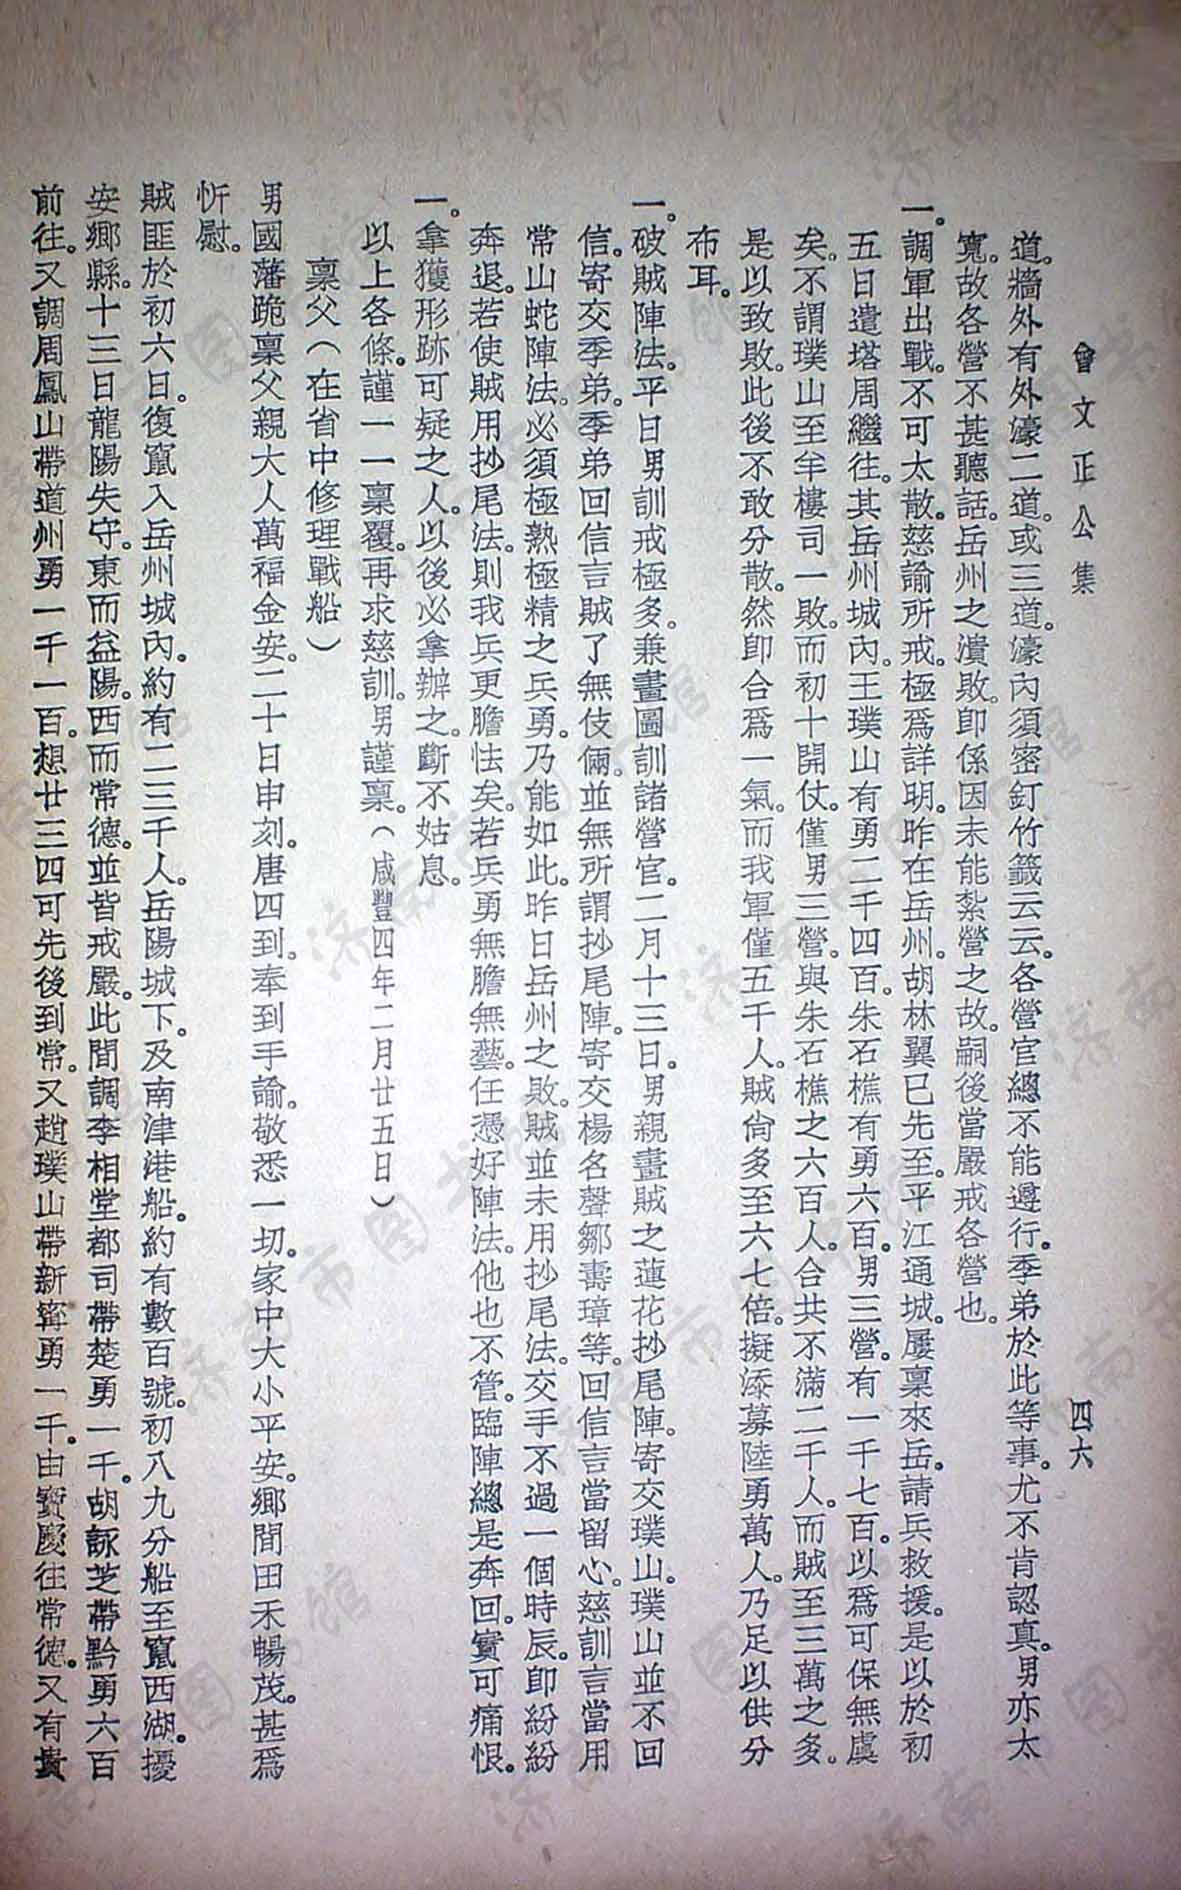 曾文正公集
四六
道。牆外有外濠二道。或三道。濠內須密釘竹籤云云。各營官總不能遵行。季弟於此等事。尤不肯認真。男亦太
寬。故各營不甚聽話。岳州之潰敗。卽係因未能紮營之故。嗣後當嚴戒各營也。
一。調軍出戰。不可太散。慈諭所戒。極爲詳明。昨在岳州。胡林翼已先至。平江通城。屢稟來岳。請兵救援。是以於初
五日遣塔周繼往。其岳州城內。王璞山有勇二千四百。朱石樵有勇六百。男三營。有一千七百。以爲可保無虞
矣。不謂璞山至羊樓司一敗。而初十開仗。僅男三營。與朱石樵之六百人。合共不滿二千人。而賊至三萬之多。
是以致敗。此後不敢分散。然卽合爲一氣。而我軍僅五千人。賊尙多至六七倍。擬添募陸勇萬人。乃足以供分
布耳。
一。破賊陣法。平日男訓戒極多。兼畫圖訓諸營官。二月十三日。男親畫賊之蓮花抄尾陣。寄交璞山。璞山並不回
信。寄交季弟。季弟回信言賊了無伎倆。並無所謂抄尾陣。寄交楊名聲鄒壽璋等。回信言當留心。慈訓言當用
常山蛇陣法。必須極熟極精之兵勇。乃能如此。昨日岳州之敗。賊並未用抄尾法。交手不過一個時辰。卽紛紛
奔退。若使賊用抄尾法。則我兵更膽怯矣。若兵勇無膽無藝。任憑好陣法。他也不管。臨陣總是奔回。實可痛恨。
一。拿獲形跡可疑之人。以後必拿辦之。斷不姑息。
以上各條。謹一一稟覆。再求慈訓。男謹稟。（咸豐四年二月廿五日）
稟父（在省中修理戰船）
男國藩跪稟父親大人萬福金安。二十日申刻。唐四到。奉到手諭。敬悉一切。家中大小平安。鄉間田禾暢茂。甚爲
忻慰。
賊匪於初六日。復竄入岳州城內。約有二三千人。岳陽城下。及南津港船。約有數百號。初八九分船至竄西湖。擾
安鄉縣。十三日龍陽失守。東而益陽。西而常德。並皆戒嚴。此間調李相堂都司帶楚勇一千。胡詠芝帶黔勇六百
前往。又調周鳳山帶道州勇一千一百。想廿三四可先後到常。又趙璞山帶新寧勇一千。由寶慶往常德。又有貴